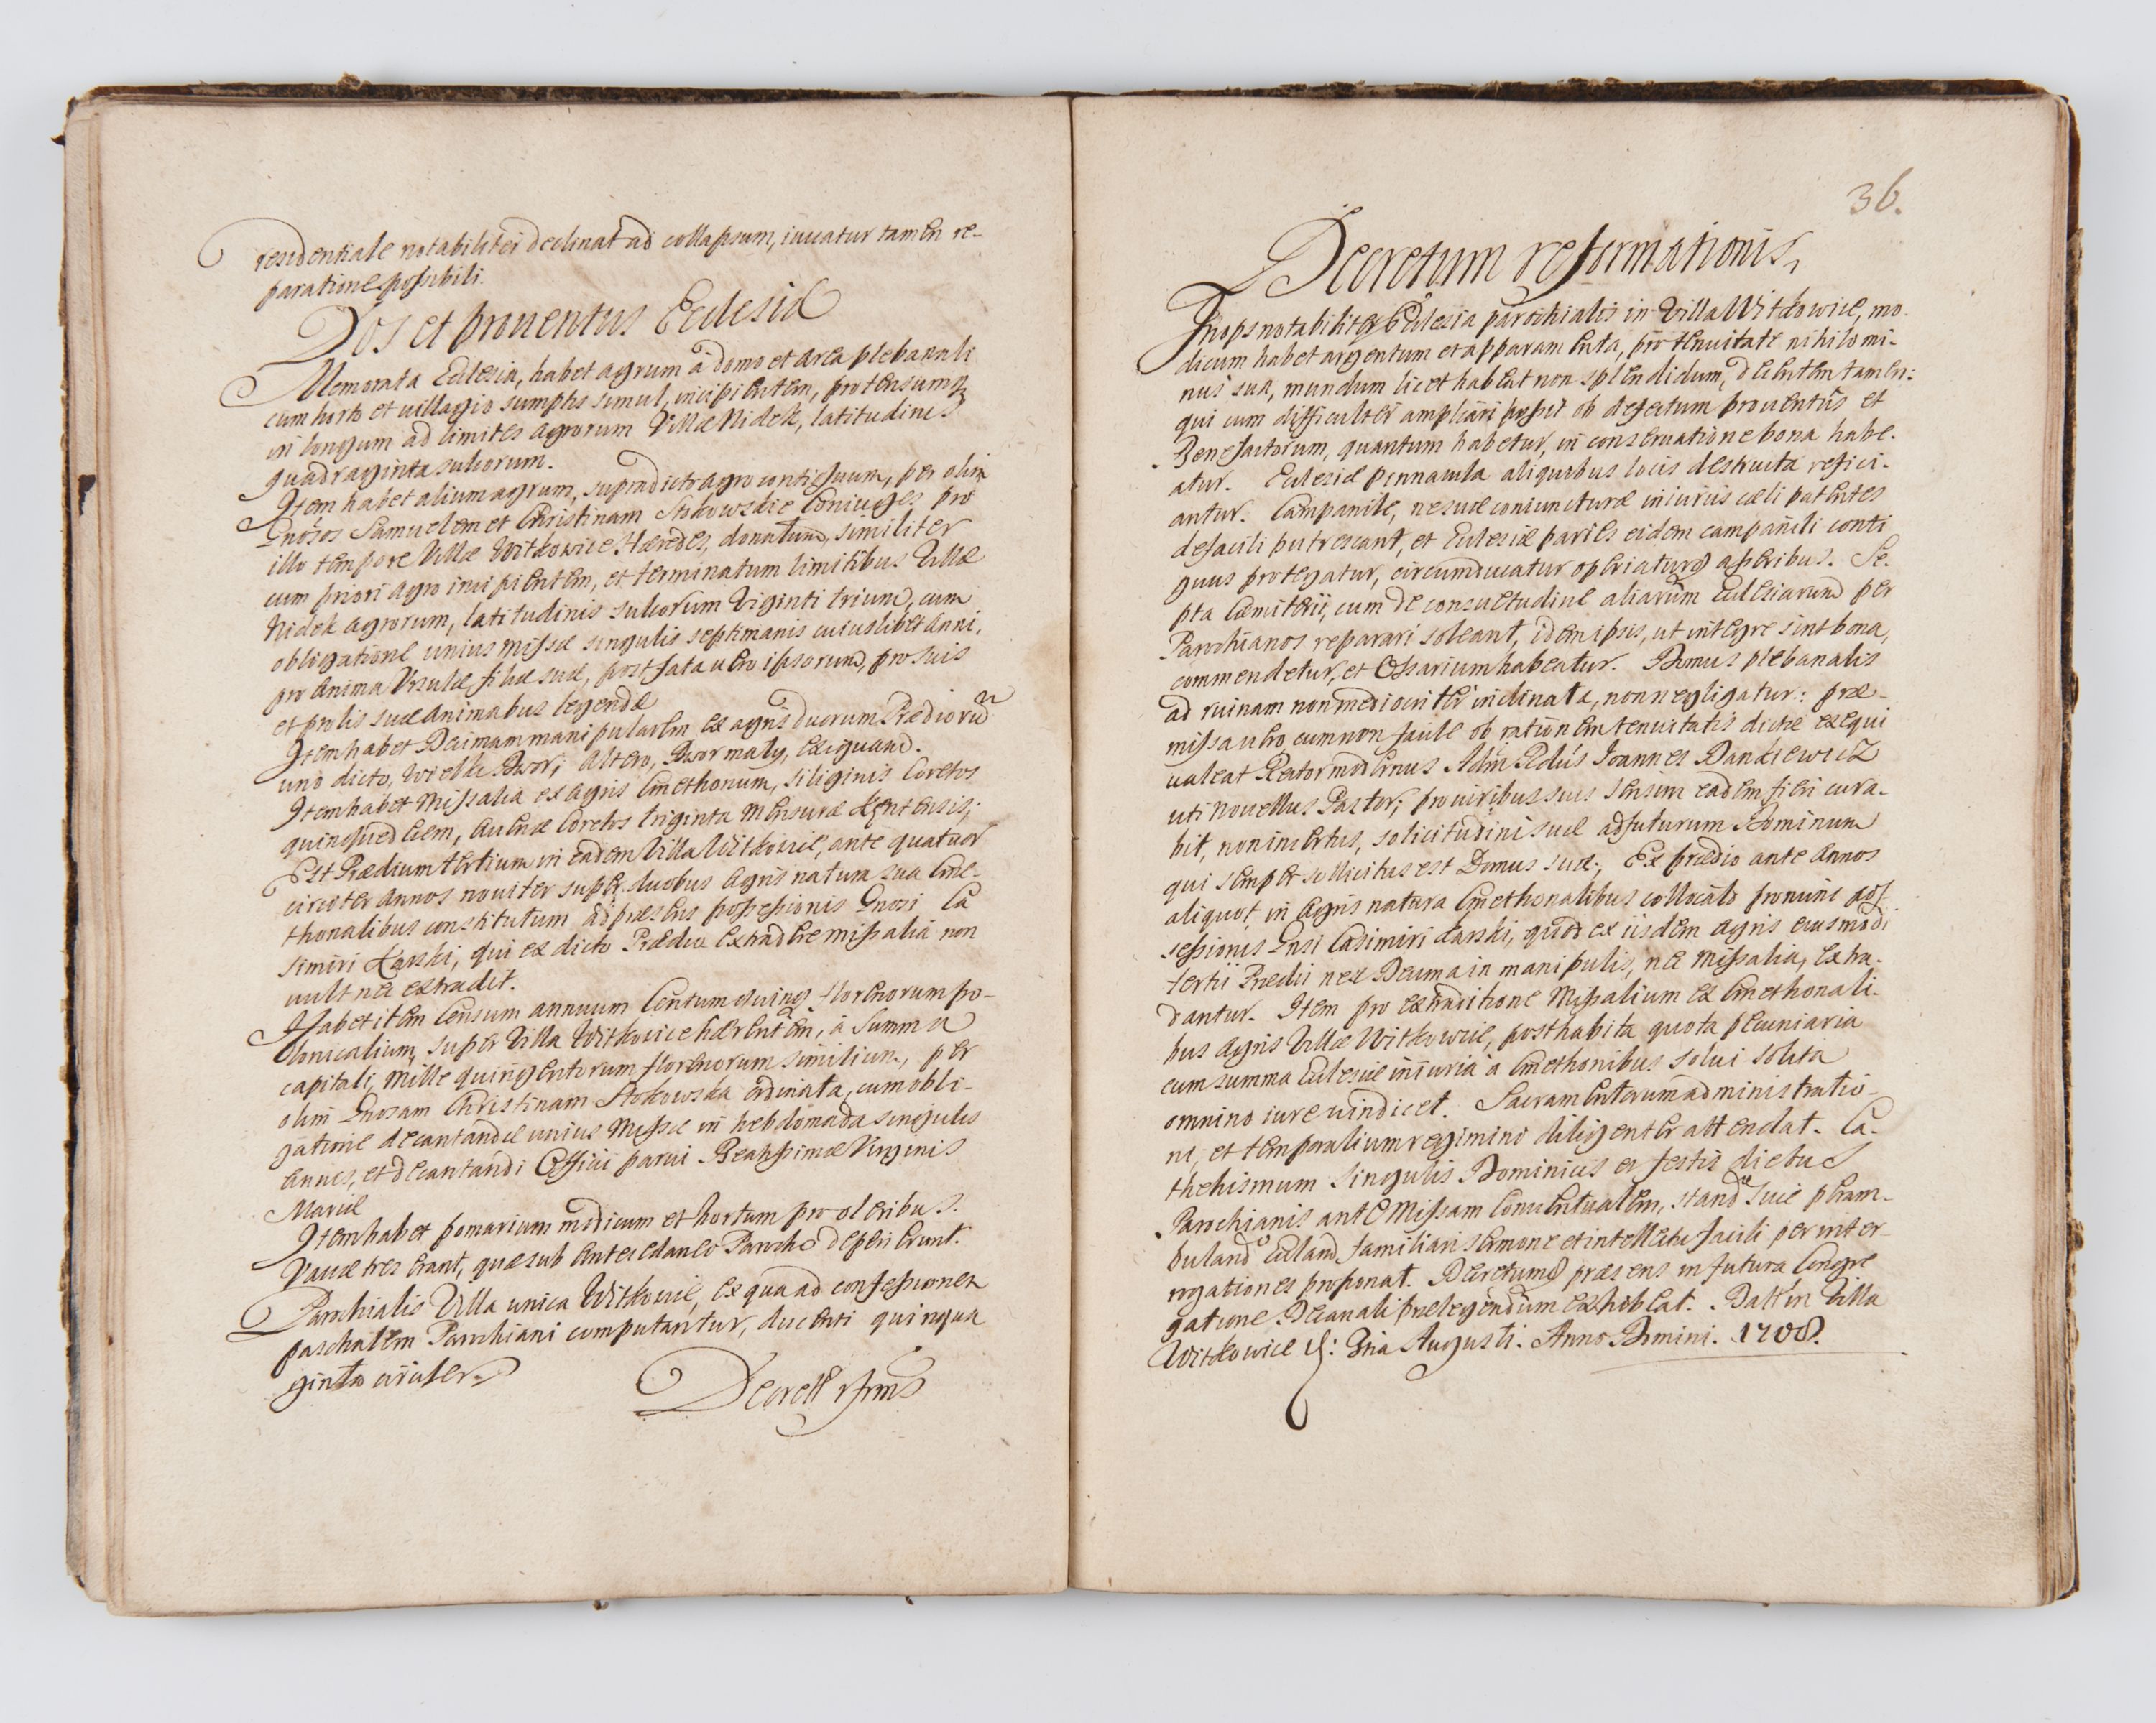 residentiale notabiliter declinat ad collapsum, iuuatur tamen re-
paratione possibili.
Dos et prouentus Ecclesiæ
Memorata Ecclesia, habet agrum à domo et area plebanali
cum horto et uillagio sumptis simul, incipientem, protensumq
in longum ad limites agrorum Villæ Nidek, latitudinis
quadraginta sulcorum.
Item habet alium agrum, supradicto agro contiguum, per olim
Gnosos Samuelem et Christinam Stokowskie Coniuges, pro
illo tempore Villæ Witkowice Hæredes, donatum, similiter
cum priori agro incipientem, et terminatum limitibus Villæ
Nidek agrorum, latitudinis sulcorum Viginti trium, cum
obligatione unius Missæ singulis septimanis cuiuslibet Anni,
pro Anima Vrsulæ filiæ suæ, post fata uero ipsorum, pro suis
et prolis suæ animabus legendæ
Item habet Decimam manipularem ex agris duorum Prædiorum
uno dicto, Wielki Dwor, Altero, Dwor maly, exiguam.
Item habet Missalia ex Agris Cmethonum, siliginis Coretos
quindecem, Auenæ Coretos triginta Mensuræ Kentensis;
Est Prædium tertium in eadem Villa Witkowice, ante quatuor
circiter Annos nouiter super duobus Agris natura sua Cme-
thonalibus constitutum ad præsens possessionis Gnosi Ca
simiri Karski, qui ex dicto Prædio extradere missalia non
uult nec extradit.
Habet item Censum annuum Centum quinq florenorum po-
lonicalium, super Villa Witkowice hærentem, à Summa
capitali, Mille quingentorum florenorum similium, per
olim Gnosam Christinam Stokowska ordinata, cum obli-
gatione decantandæ unius Missæ in hebdomada singulis
Annis, et decantandi Officii parui Beatissimæ Virginis
Mariæ
Item habet pomarium modicum et hortum pro oleribus.
Vaccæ tres erant, quæ sub Antecedaneo Parocho deperierunt.
Parochialis Villa unica Witkowice, ex qua ad confessionem
paschalem Parochiani computantur, ducenti quinqua
ginta circiter.
Decrett rfrms
36.
Decretum reformationis,
Inops notabiliter Ecclesia parochialis in Villa Witkowice, mo-
dicum habet argentum et apparamenta, pro tenuitate nihilomi-
nus sua, mundum licet habeat non splendidum, decentem tamen:
qui cum difficulter ampliari possit ob defectum prouentûs et
Benefactorum, quantum habetur, in conseruatione bona habe-
atur. Ecclesiæ pinnacula aliquibus locis destructa refici-
antur. Campanile, ne suæ coniuncturæ iniuriis cæli patentes
defacili putrescant, et Ecclesiæ paries eidem campanili conti
guus protegatur, circumducatur operiaturq asseribus. Se-
pta Cæmiterii, cum de consuetudine aliarum Ecclesiarum per
Parochianos reparari soleant, idem ipsis, ut integre sint bona,
commendetur, et Ossarium habeatur. Domus plebanalis
ad ruinam non mediocriter inclinata, non negligatur: præ-
missa uero, cum non facile ob rationem tenuitatis dictæ exequi
ualeat Rector modernus Adm Rdus Joannes Dankiewicz
uti nouellus Pastor; pro uiribus suis sensim eadem fieri cura-
bit, non incertus, solicitudini suæ adfuturum Dominum
qui semper sollicitus est Domus suæ; Ex prædio ante Annos
aliquot, in Agris natura Cmethonalibus collocato pro nunc pos
sessionis Gnsi Casimiri Karski, quod ex iisdem agris eiusmodi
tertii Prædii nec Decima in manipulis, nec Missalia, extra-
dantur. Item pro extraditione Missalium ex Cmethonali-
bus Agris Villæ Witkowice, posthabita quota pecuniaria
cum summa Ecclesiæ iniuria à Cmethonibus solui solita
omnino iure uindicet. Sacramentorum administratio-
ni, et temporalium regimini diligenter attendat. Ca-
thechismum singulis Dominicis et festis diebus
Parochianis ante Missam Conuentualem, familiari sermone et intellectu facili per inter-
rogationes proponat. Decretumq præsens in futura Congre
gatione Decanali prælegendum exhibeat. Datt in Villa
Witkowice Augusti. Anno Domini. 1708.